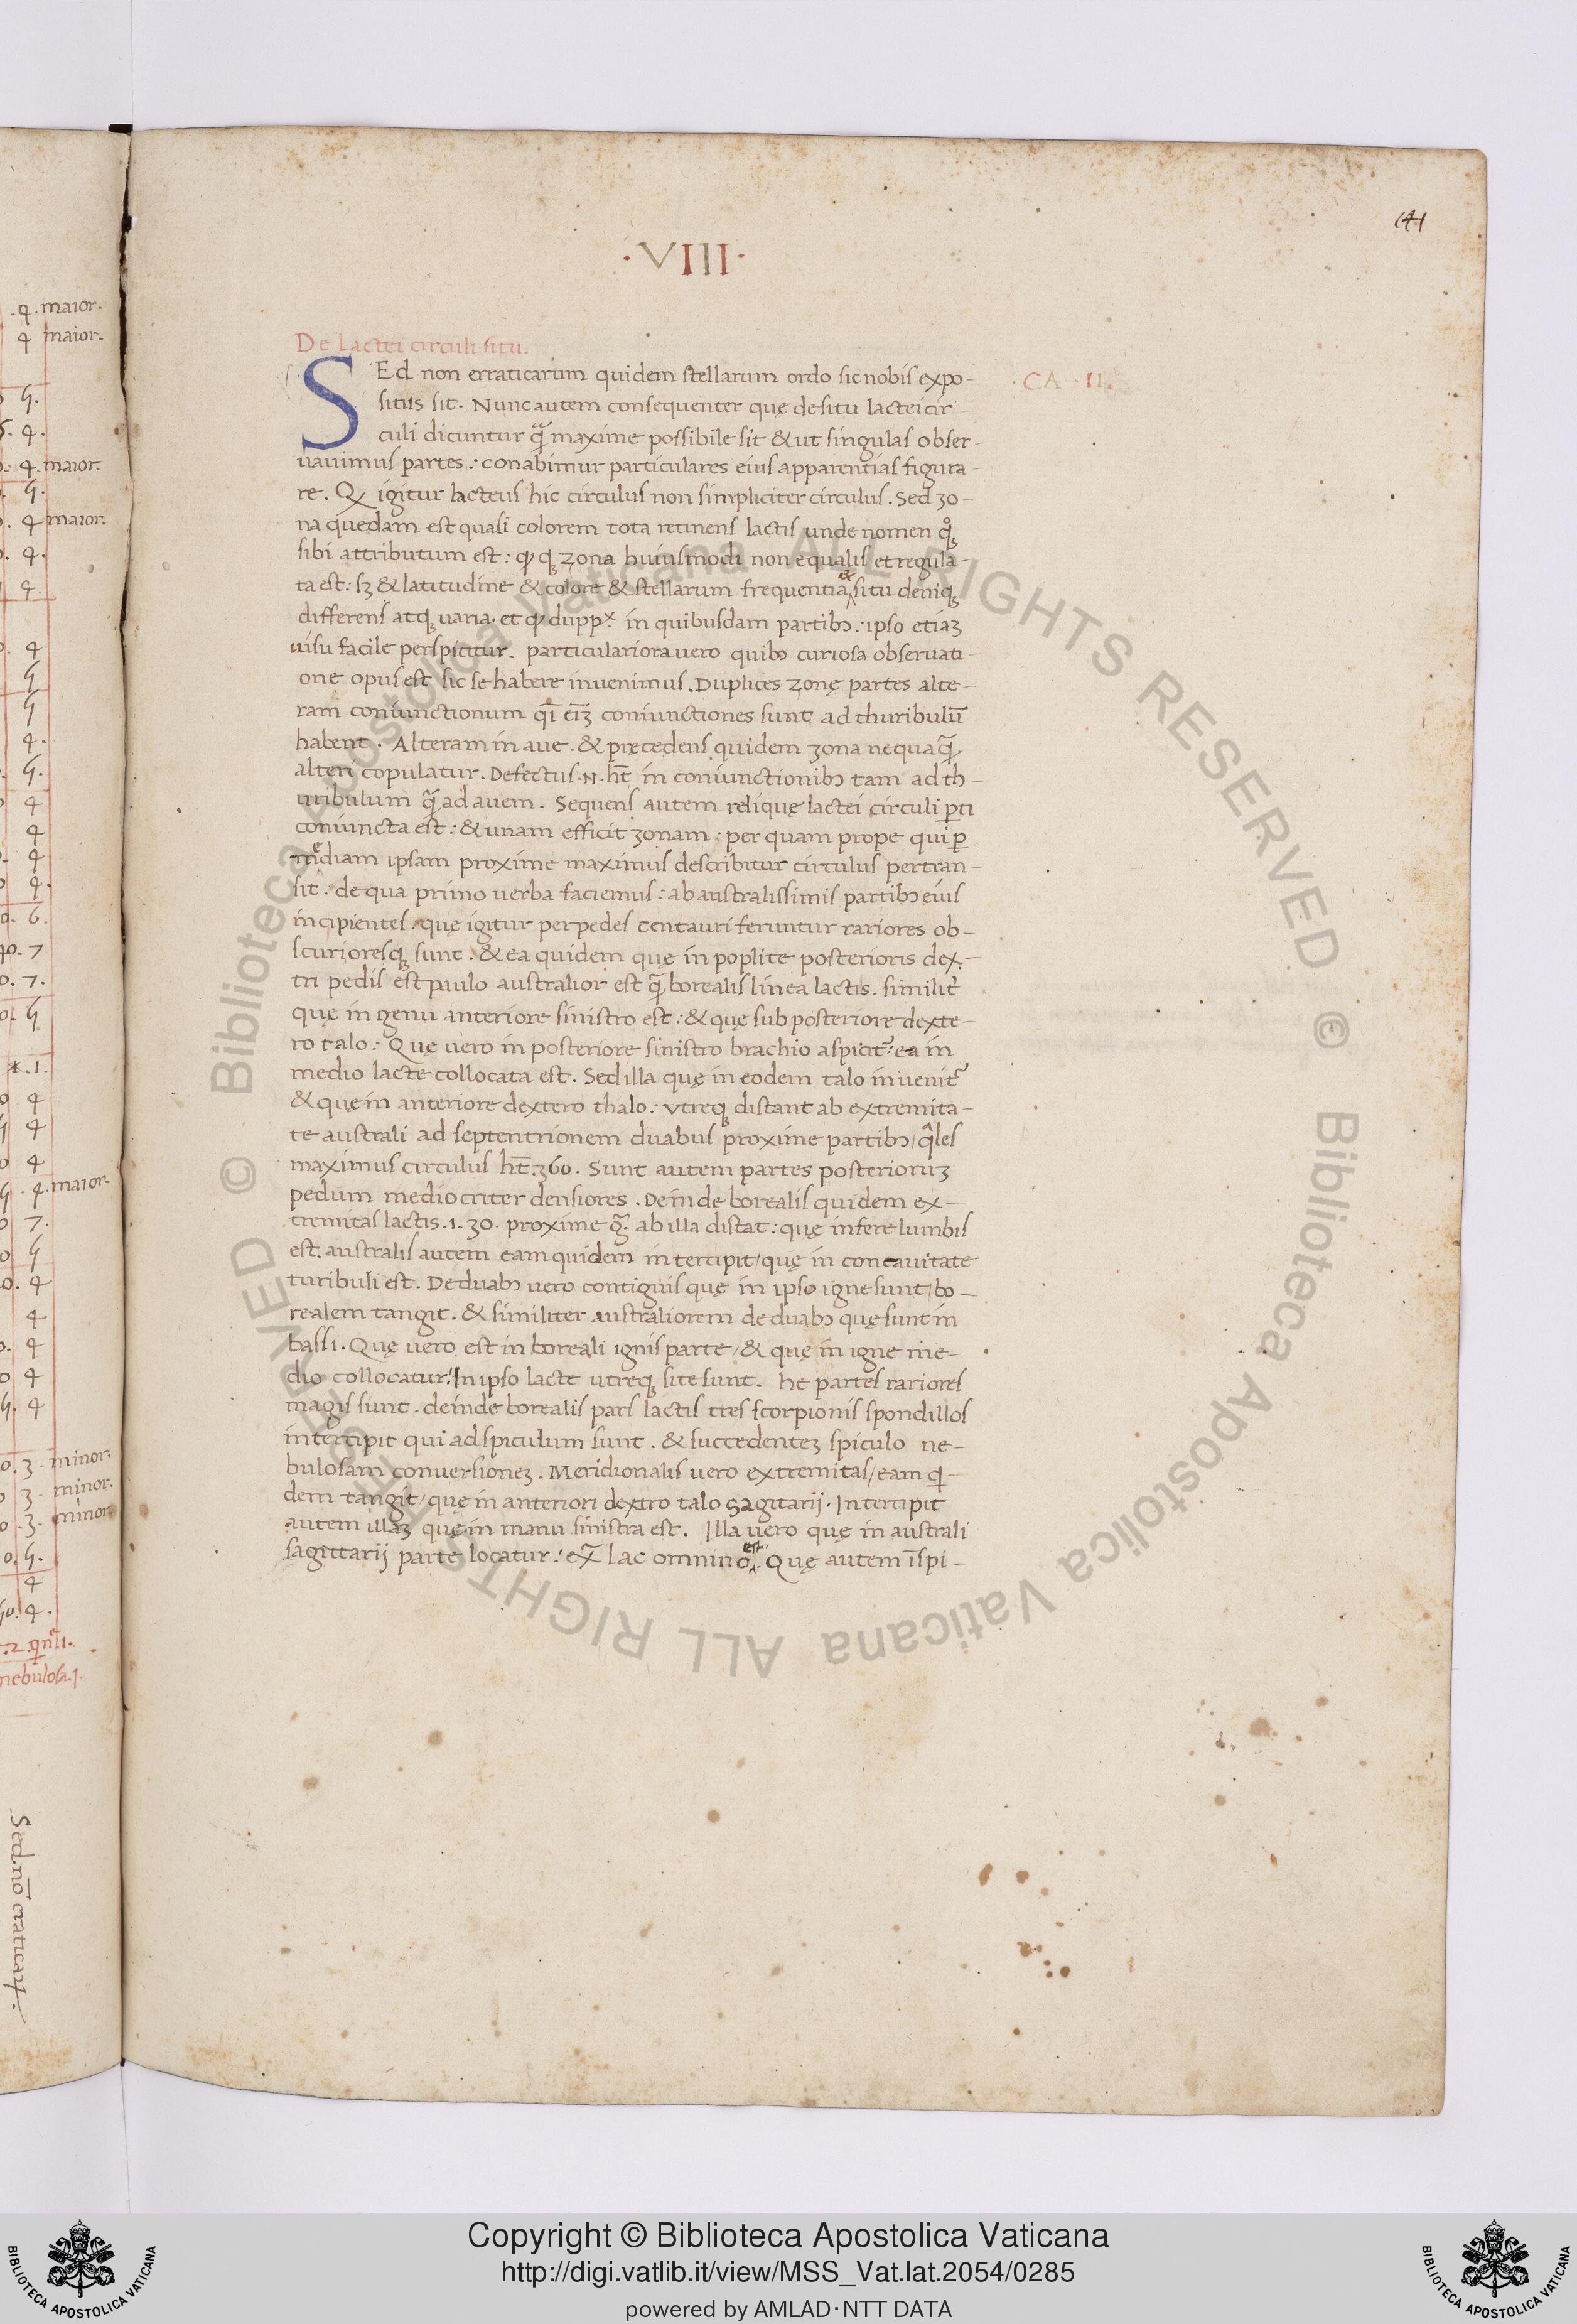 141
·VIII·
De Lactei circuli situ.
SEd non erraticarum quidem stellarum ordo sic nobis expo-
CA · II.
situs sit. Nunc autem consequenter quę de situ lactei cir
culi dicuntur q̃ maxime possibile sit & ut singulas obser-
uauimus partes: conabimur particulares eius apparentias figura-
re. Qꝫ igitur lacteus hic circulus non simpliciter circulus. Sed zo-
na quedam est quasi colorem tota retinens lactis unde nomen qͦꝫ
sibi attributum est: ꝙ qꝫ zona huiusmodi non equalis et regula-
ta est: sꝫ & latitudine & colore & stellarum frequentia ex situ deniqꝫ
differens atqꝫ uaria. et ꝙ dupp.ˣ in quibusdam partibꝰ: ipso etiaꝫ
uisu facile perspicitur. particulariora uero quibꝰ curiosa obseruati-
one opus est sic se habere inuenimus. Duplices zonę partes alte-
ram coniunctionum qı̄ eiꝫ coniunctiones sunt ad thuribulū
habent. Alteram in aue. & pręcedens quidem zona nequaq̃.
alteri copulatur. Defectus .N. ht̄ in coniunctionibꝰ tam ad th-
uribulum q̃ ad auem. Sequens autem reliquę lactei circuli ꝑti
coniuncta est: & unam efficit zonam: per quam prope qui ꝑ
mediam ipsam proxime maximus describitur circulus pertran-
sit. de qua primo uerba faciemus: ab australissimis partibꝰ eius
incipientes. quę igitur per pedes centauri feruntur rariores ob-
scurioresqꝫ sunt. & ea quidem quę in poplite posterioris dex-
tri pedis est paulo australior est q̃ borealis linea lactis. similit̃
quę in genu anteriore sinistro est: & quę sub posteriore dexte-
ro talo: Quę uero in posteriore sinistro brachio aspicit̃: ea in
medio lacte collocata est. Sed illa quę in eodem talo inuenit̃
& quę in anteriore dextero thalo: utreqꝫ distant ab extremita-
te australi ad septentrionem duabus proxime partibꝰ / q̃les
maximus circulus ht̄. 360. Sunt autem partes posterioruꝫ
pedum mediocriter densiores. Deinde borealis quidem ex-
tremitas lactis .1. 30. proxime g̃. ab illa distat: quę in fere lumbis
est. australis autem eam quidem intercipit / quę in concauitate
turibuli est. De duabꝰ uero contiguis quę in ipso igne sunt / bo-
realem tangit. & similiter australiorem de duabꝰ quę sunt in
bassi. Quę uero est in boreali ignis parte / & quę in igne me-
dio collocatur: In ipso lacte utreqꝫ site sunt. he partes rariores
magis sunt. deinde borealis pars lactis tres scorpionis spondillos
intercipit qui ad spiculum sunt. & succedenteꝫ spiculo ne-
bulosam conuersioneꝫ. Meridionalis uero extremitas / eam qi-
dem tangit / quę in anteriori dextro talo Sagitarij. Intercipit
autem illaꝫ quę in manu sinistra est. Illa uero quę in australi
sagittarij parte locatur: ex̃ lac omnino est. Quę autem ı̄ spi-
.4. maior.
4 maior.
4. maior.
4 maior.
4. maior.
3. minor.
3. minor.
3. minor.
nebulosa .1.
Sed. nō eraticaꝝ.
Copyright © Biblioteca Apostolica Vaticana
http://digi.vatlib.it/view/MSS_Vat.lat.2054/0285
powered by AMLAD·NTT DATA
BIBLIOTECA APOSTOLICA VATICANA
BIBLIOTECA APOSTOLICA VATICANA
© Biblioteca Apostolica Vaticana ALL RIGHTS RESERVED © Biblioteca Apostolica Vaticana ALL RIGHTS RESERVED